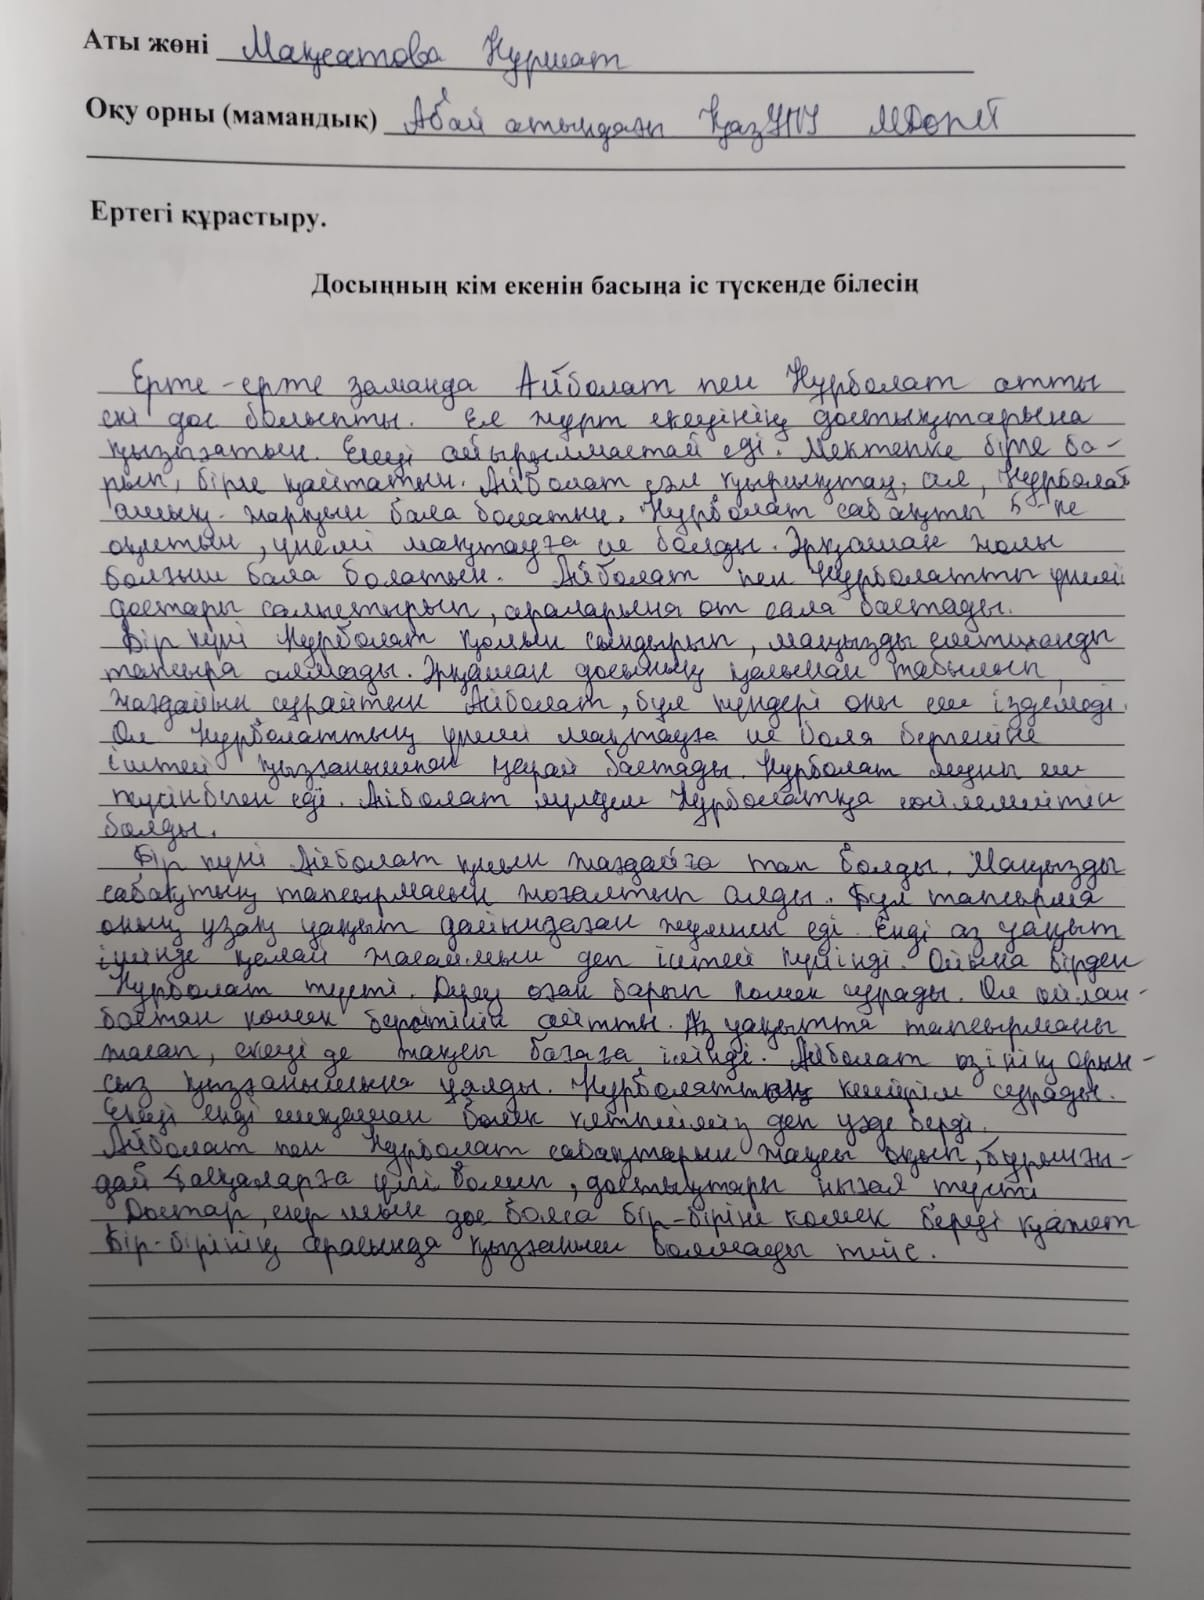 Аты жөні Мақсатова Нұршат
Оқу орны (мамандық) Абай атындағы ҚазҰПУ МДОПП
Ертегі құрастыру.
Досыңның кім екенін басыңа іс түскенде білесің
Ерте-ерте заманда Айболат пен Нұрболат атты
екі дос болыпты. Ел жұрт екеуінің достықтарына
қызығатын. Екеуі айырылмастай еді. Мектепке бірге ба-
рып, бірге қайтатын. Айболат сәл қыңырықтау, ал, Нұрболат
ашық-жарқын бала болатын. Нұрболат сабақты 5-ке
оқитын, үнемі мақтауға ие болды. Әрқашан жолы
болғыш бала болатын. Айболат пен Нұрболатты үнемі
достары салыстырып, араларына от сала бастады.
Бір күні Нұрболат қолын сындырып, маңызды емтиханды
тапсыра алмады. Әрқашан досының қасынан табылып,
жағдайын сұрайтын Айболат, бұл күндері оны еш іздемеді.
Ол Нұрболаттың үнемі мақтауға ие бола бергеніне
іштей қызғанышпен қарай бастады. Нұрболат мұны еш
түсінбеген еді. Айболат мүлдем Нұрболатқа сөйлемейтін
болды.
Бір күні Айболат қиын жағдайға тап болды. Маңызды
сабақтың тапсырмасын жоғалтып алды. Бұл тапсырма
оның ұзақ уақыт дайындаған жұмысы еді. Енді аз уақыт
ішінде қалай жасаймын деп іштей күйінді. Ойына бірден
Нұрболат түсті. Дереу оған барып көмек сұрады. Ол ойлан-
бастан көмек беретінін айтты. Аз уақытта тапсырманы
жасап, екеуі де жақсы бағаға ілінді. Айболат өзінің орын-
сыз қызғанышына ұялды. Нұрболаттан кешірім сұрады.
Екеуі енді ешқашан бөлек кетпейміз деп уәде берді.
Айболат пен Нұрболат сабақтарын жақсы оқып, бұрынғы-
дай басқаларға үлгі болып, достықтары нығая түсті
Достар, егер шын дос болса бір-біріне көмек береді қажет
Бір-бірінің арасында қызғаныш болмауы тиіс.